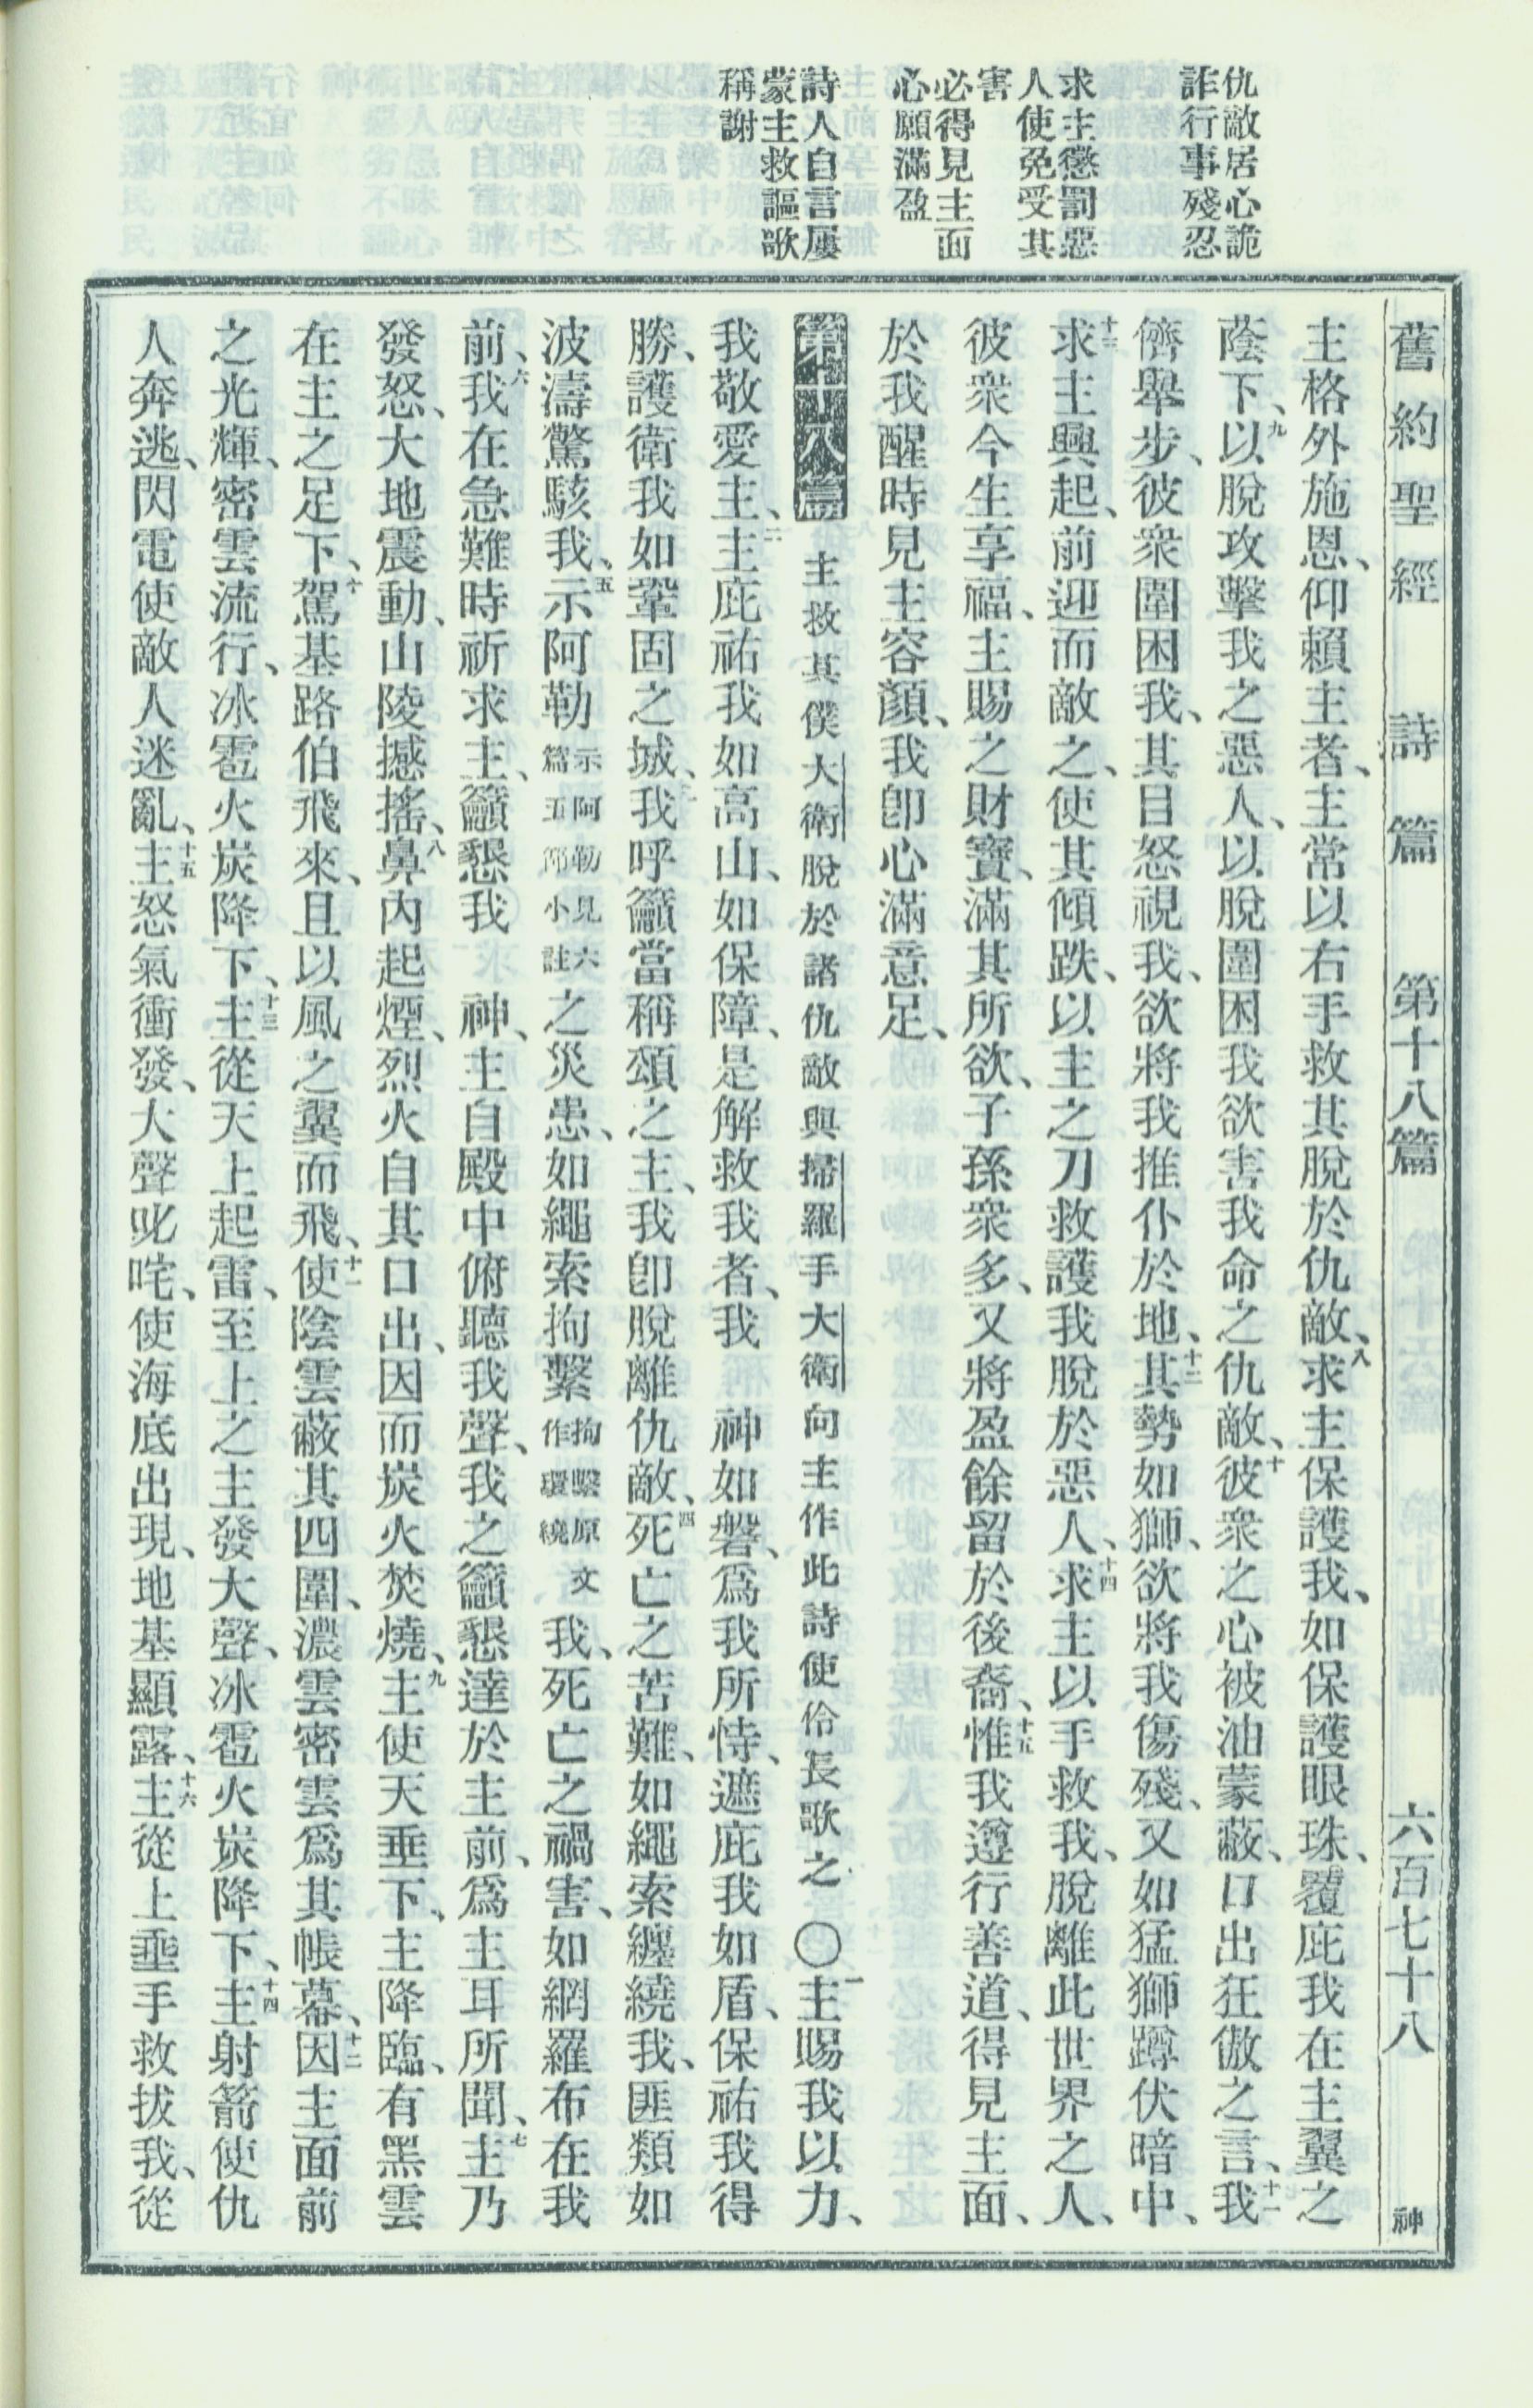 仇敵居心詭
詐行事殘忍
求主懲罰惡
人使免受其
害
必得見主面
心願滿盈
詩人自言屢
蒙主救謳歌
稱謝
舊約聖經 詩篇 第十八篇 六百七十八 神
主格外施恩、仰賴主者、主常以右手救其脫於仇敵、八求主保護我、如保護眼珠、覆庇我在主翼之
蔭下、九以脫攻擊我之惡人、以脫圍困我欲害我命之仇敵、十彼衆之心被油蒙蔽、口出狂傲之言、十一我
儕舉步、彼衆圍困我、其目怒視我、欲將我推仆於地、十二其勢如獅、欲將我傷殘、又如猛獅蹲伏暗中、
十三求主興起、前迎而敵之、使其傾跌、以主之刀救護我脫於惡人、十四求主以手救我、脫離此世界之人、
彼衆今生享福、主賜之財寶、滿其所欲、子孫衆多、又將盈餘留於後裔、十五惟我遵行善道、得見主面、
於我醒時見主容顏、我卽心滿意足、
第十八篇 主救其僕大衛脫於諸仇敵與掃羅手大衛向主作此詩使伶長歌之 〇一主賜我以力、
我敬愛主、二主庇祐我如高山、如保障、是解救我者、我 神如磐、爲我所恃、遮庇我如盾、保祐我得
勝、護衛我如鞏固之城、三我呼籲當稱頌之主、我卽脫離仇敵、四死亡之苦難、如繩索纏繞我、匪類如
波濤驚駭我、五示阿勒示阿勒見六篇五節小註之災患、如繩索拘繫拘繫原文作環繞我、死亡之禍害、如網羅布在我
前、六我在急難時祈求主、籲懇我 神、主自殿中俯聽我聲、我之籲懇達於主前、爲主耳所聞、七主乃
發怒、大地震動、山陵撼搖、八鼻內起煙、烈火自其口出、因而炭火焚燒、九主使天垂下、主降臨、有黑雲
在主之足下、十駕基路伯飛來、且以風之翼而飛、十一使陰雲蔽其四圍、濃雲密雲爲其帳幕、十二因主面前
之光輝、密雲流行、冰雹火炭降下、十三主從天上起雷、至上之主發大聲、冰雹火炭降下、十四主射箭使仇
人奔逃、閃電使敵人迷亂、十五主怒氣衝發、大聲叱咤、使海底出現、地基顯露、十六主從上垂手救拔我、從